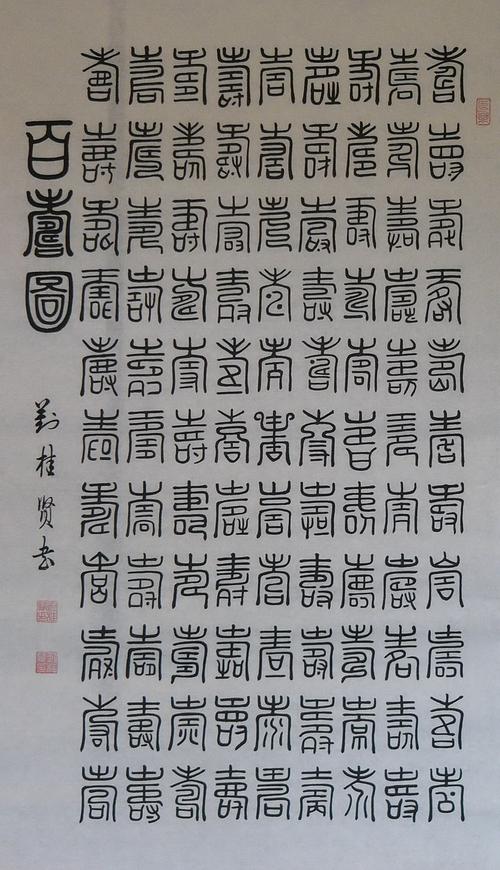 壽壽壽壽壽壽壽壽壽壽壽
壽壽壽壽壽壽壽壽壽壽壽
壽壽壽壽壽壽壽壽壽壽壽
壽壽壽壽壽壽壽壽壽壽壽
壽壽壽壽壽壽壽壽壽壽壽
壽壽壽壽壽壽壽壽壽壽壽
壽壽壽壽壽壽壽壽壽壽壽
壽壽壽壽壽壽壽壽壽壽壽
壽壽壽壽壽壽壽壽壽壽壽
百壽圖
劉桂贤书